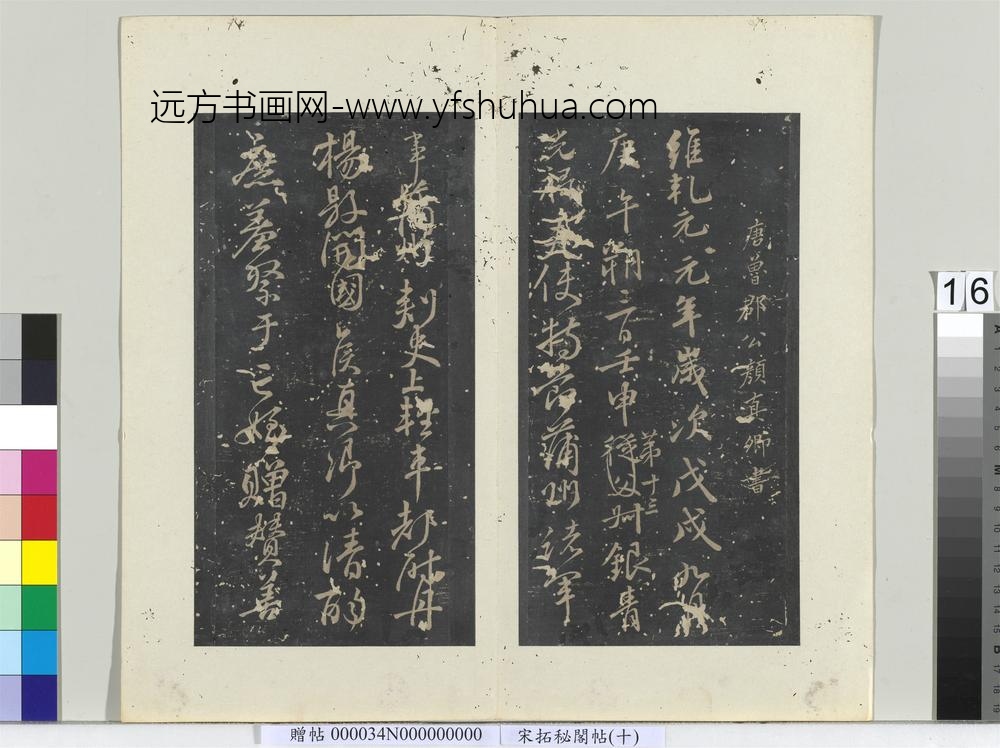 远方书画网-www.yfshuhua.com
唐魯郡公顏真卿書
維乾元元年歲次戊戌九月
庚午朔三日壬申第十三從父叔銀青
光祿夫使持節蒲州諸軍
事蒲州刺史上輕車都尉丹
楊縣開國侯真卿以清酌
庶羞祭于亡姪贈贊善
16
贈帖 000034N000000000
宋拓秘閣帖(十)